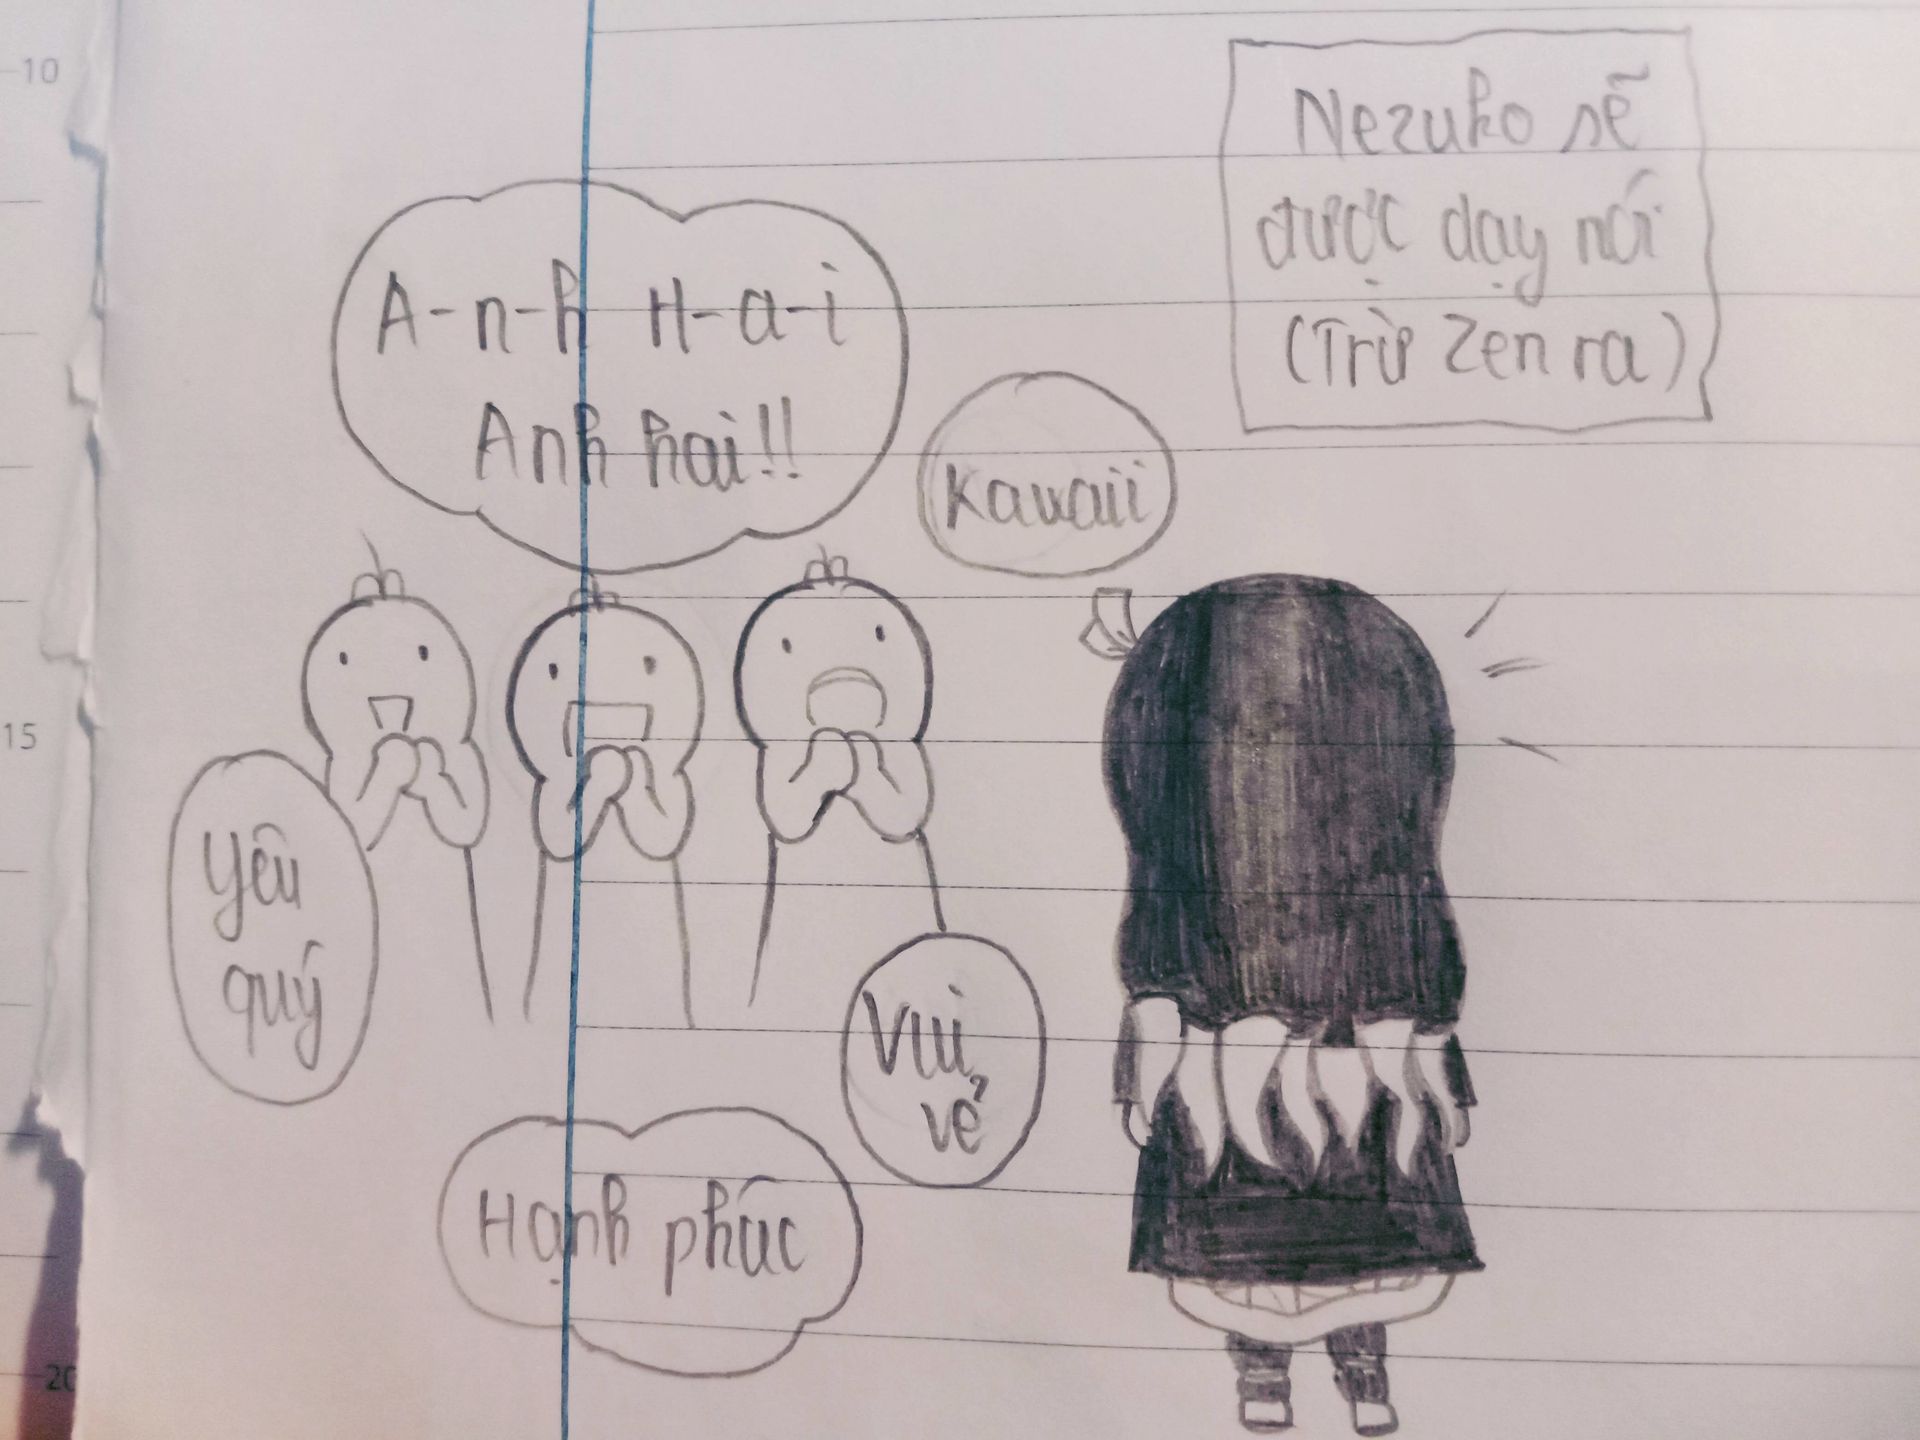 10
Nezuko sẽ
được dạy nói
(Trừ Zen ra)
A-n-h H-a-i
Anh hai!!
Kawaii
15
Yêu
quý
Vui
vẻ
Hạnh phúc
20